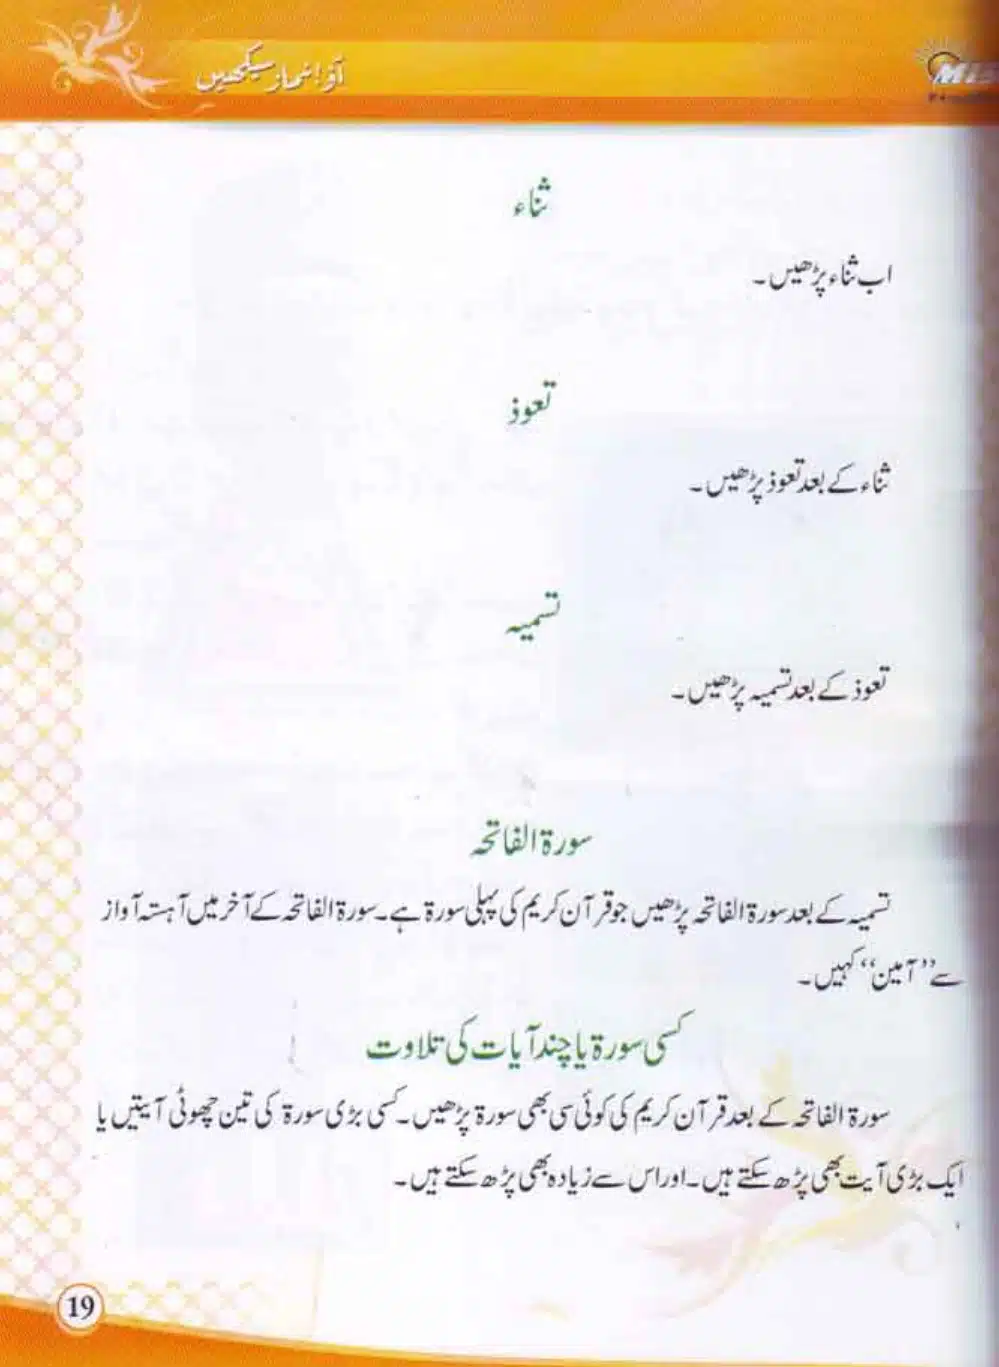 آؤ! نماز سیکھیں
ثناء
اب ثناء پڑھیں۔
تعوذ
ثناء کے بعد تعوذ پڑھیں۔
تسمیہ
تعوذ کے بعد تسمیہ پڑھیں۔
سورۃ الفاتحہ
تسمیہ کے بعد سورۃ الفاتحہ پڑھیں جو قرآن کریم کی پہلی سورۃ ہے۔ سورۃ الفاتحہ کے آخر میں آہستہ آواز
سے ”آمین“ کہیں۔
کسی سورۃ یا چند آیات کی تلاوت
سورۃ الفاتحہ کے بعد قرآن کریم کی کوئی سی بھی سورۃ پڑھیں۔ کسی بڑی سورۃ کی تین چھوٹی آیتیں یا
ایک بڑی آیت بھی پڑھ سکتے ہیں۔ اور اس سے زیادہ بھی پڑھ سکتے ہیں۔
19